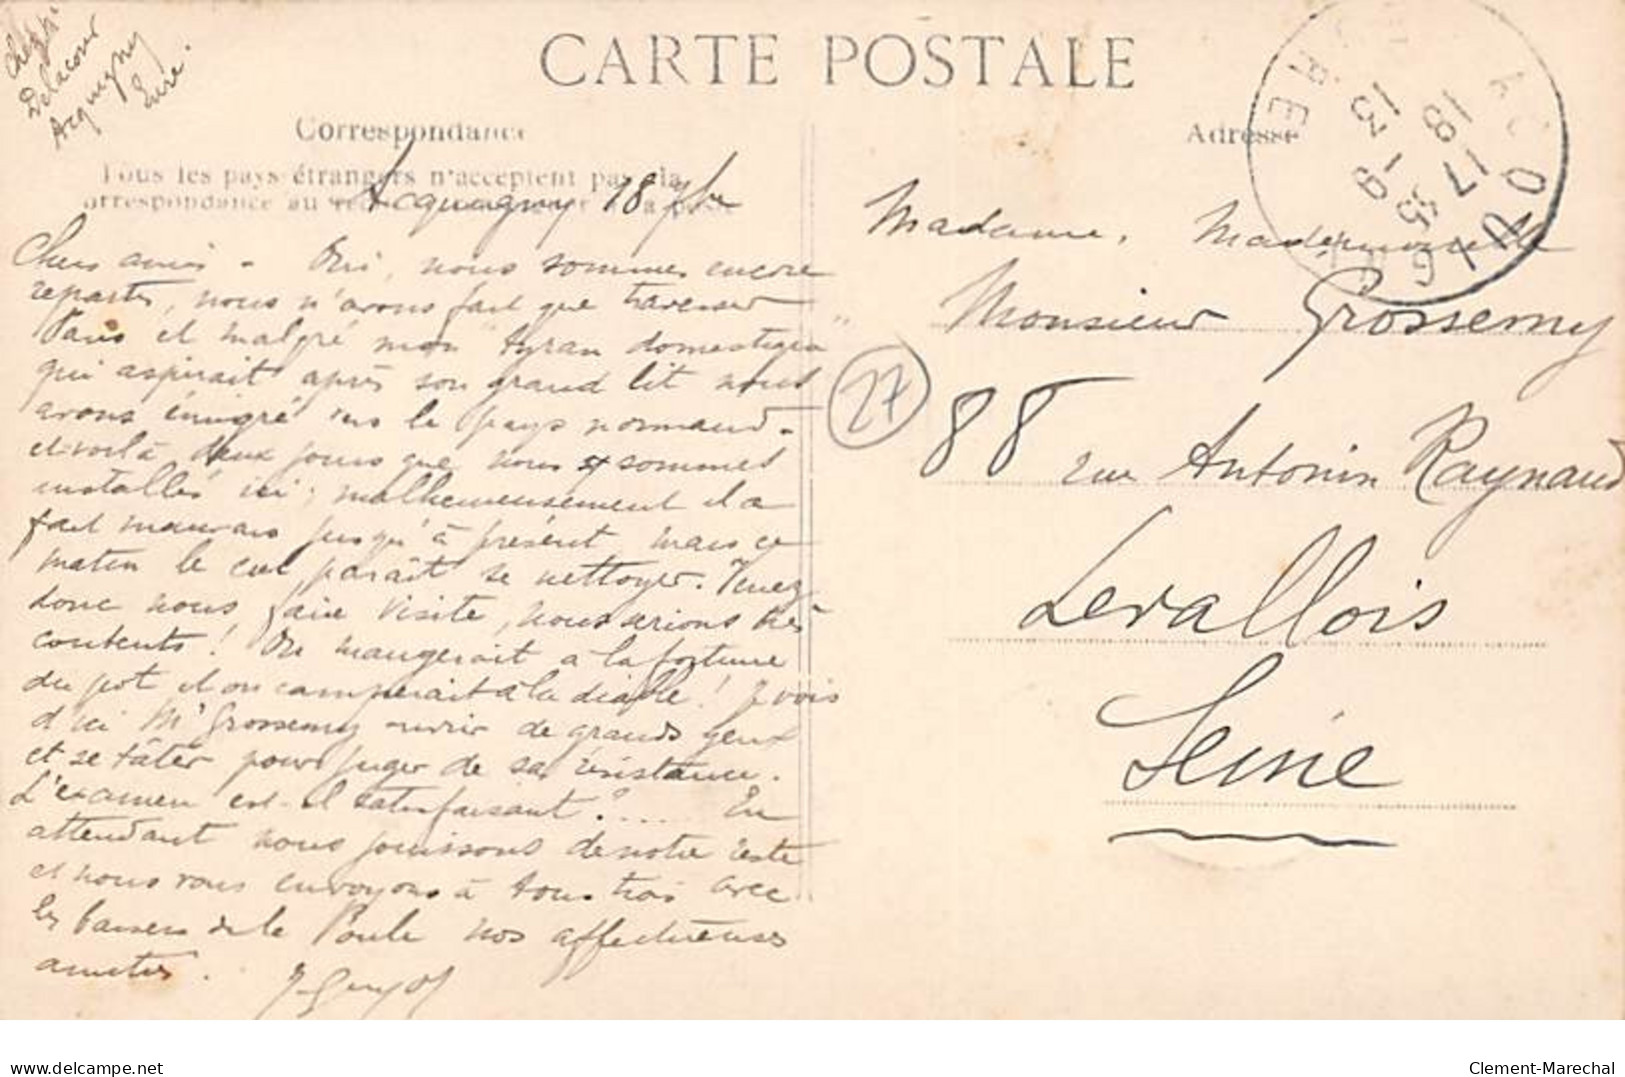 Chez Mr
Delacour
Acquigny
Eure.
CARTE POSTALE
Correspondance
Tous les pays étrangers n'acceptent pas la
correspondance au
Acquigny 18 7bre
Chers amis - Oui, nous sommes encore
repartis, nous n'avons fait que traverser
Paris et malgré mon "tyran domestique"
qui aspirait après son grand lit nous
avons émigré vers le pays normand -
et voilà deux jours que nous sommes
installés ici ; malheureusement il a
fait mauvais jusqu'à présent mais ce
matin le ciel paraît se nettoyer. Venez
donc nous faire visite, nous serions très
contents ! On mangerait à la fortune
du pot et on camperait à la diable ! Je vois
d'ici Mr Grossemy ouvrir de grands yeux
et se tâter pour juger de sa résistance.
L'examen est-il satisfaisant ?.... En
attendant nous jouissons de notre reste
et nous vous envoyons à tous trois avec
les baisers de la Poule nos affectueuses
amitiés.
J Guyot
Adresse
ACQUIGNY
EURE
17 35
18 -9
13
27
Madame, Mademoiselle
Monsieur Grossemy
88 rue Antonin Raynaud
Levallois
Seine
www.delcampe.net
Clement-Marechal